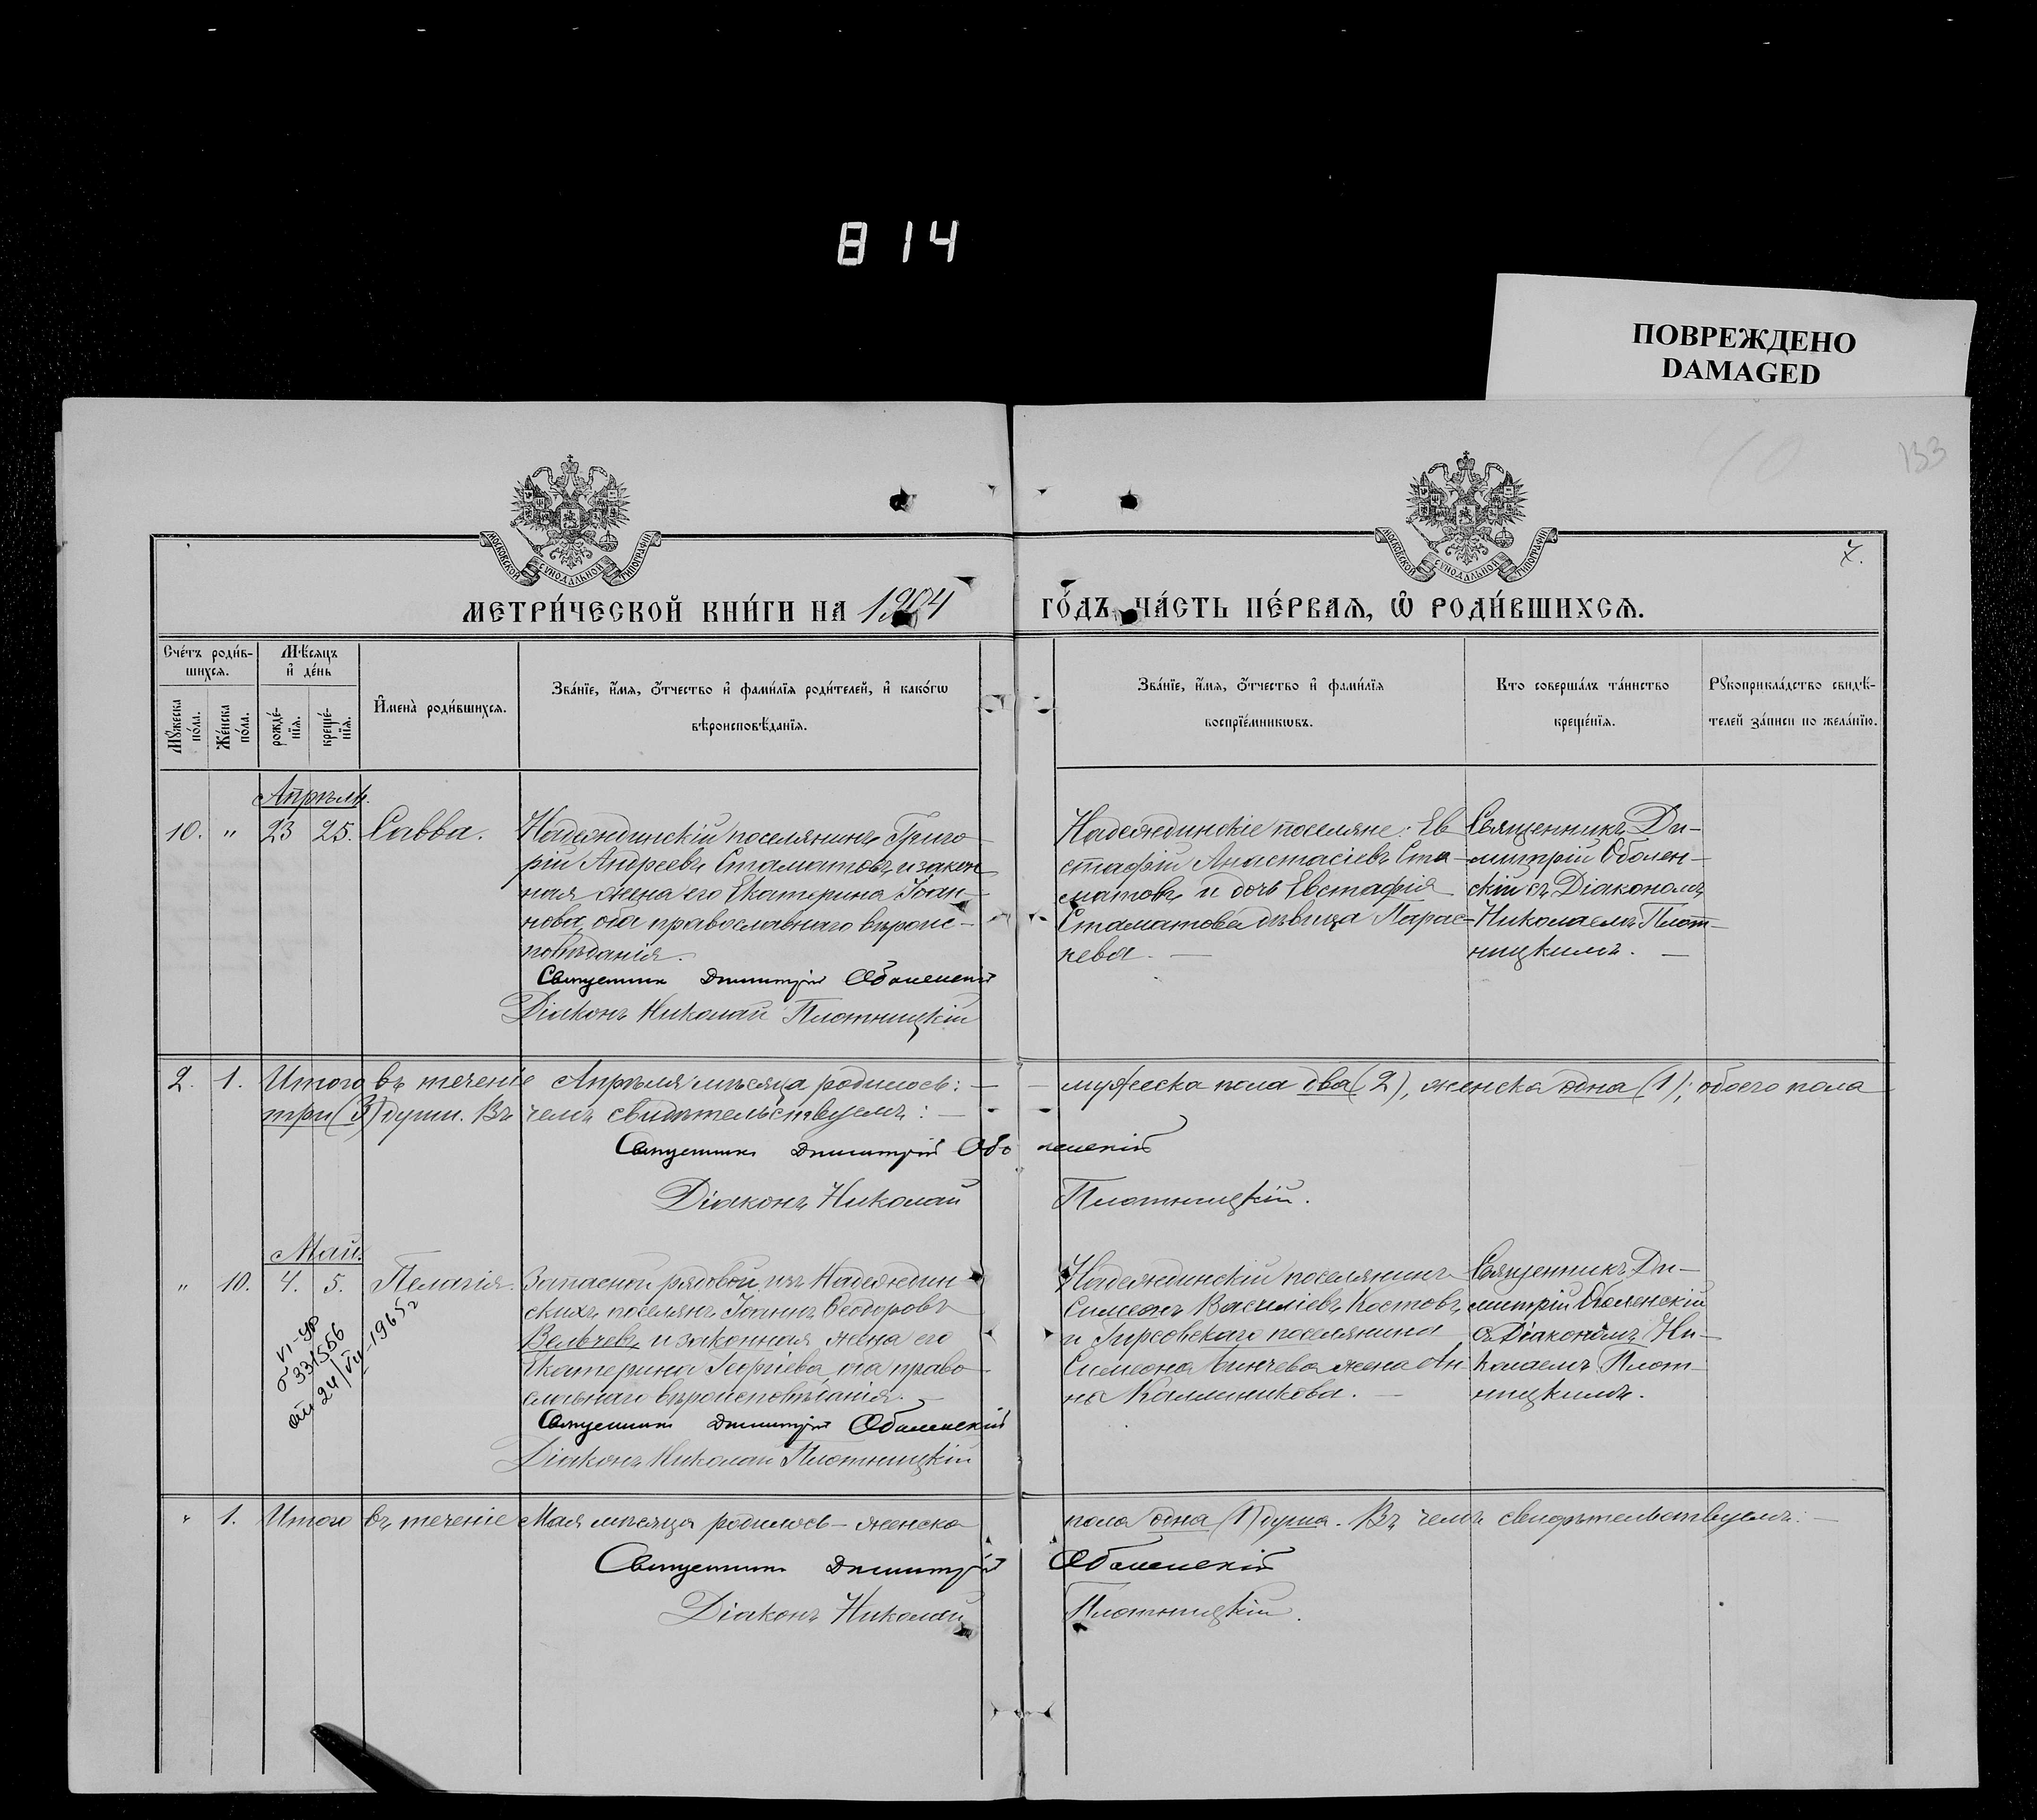 814
ПОВРЕЖДЕНО
DAMAGED
133
МОСКОВСКОЙ СѴНОДАЛЬНОЙ ТИПОГРАФІИ
МОСКОВСКОЙ СѴНОДАЛЬНОЙ ТИПОГРАФІИ
7.
МЕТРИ́ЧЕСКОЙ КНИ́ГИ НА 1904
ГО́ДЪ ЧА́СТЬ ПЕ́РВАѦ, Ѡ҆ РОДИ́ВШИХСѦ.
Сче́тъ роди́в-
шихсѧ.
Мꙋ́жеска
по́ла.
Же́нска
по́ла.
Мѣ́сѧцъ
и҆ де́нь
рожде́-
нїѧ.
креще́-
нїѧ.
И҆мена̀ роди́вшихсѧ.
Зва́нїе, и҆́мѧ, ѻ҆́тчество и҆ фами́лїѧ роди́телей, и҆ како́гѡ
вѣроисповѣ́данїѧ.
Зва́нїе, и҆́мѧ, ѻ҆́тчество и҆ фами́лїѧ
воспрїе́мникѡвъ.
Кто соверша́лъ та́инство
креще́нїѧ.
Рꙋкоприкла́дство свидѣ́-
телей за́писи по жела́нїю.
Апрѣль.
10. " 23 25. Савва.
Надеждинскій поселянинъ Григо
рій Андреевъ Стаматовъ и закон
ная жена его Екатерина Іоан-
нова, оба православнаго вѣроис-
повѣданія.
Священникъ Димитрій Оболенскій
Діаконъ Николай Плотницкій
Надеждинскіе поселяне: Ев
стафій Анастасіевъ Ста-
матовъ и дочь Евстафія
Стаматова дѣвица Парас-
кева. —
Священникъ Ди-
митрій Оболен-
скій съ Діакономъ
Николаемъ Плот-
ницкимъ. —
2. 1. Итого въ теченіе Апрѣля мѣсяца родилось: — мужеска пола два (2), женска одна (1); обоего пола
три (3) души. Въ чемъ свидѣтельствуемъ: —
Священникъ Димитрій Оболенскій
Діаконъ Николай Плотницкій.
Май.
" 10. 4. 5. Пелагія.
VI-УР
331556
от 24/VII-1965 г
Запасной рядовой изъ Надеждин-
скихъ поселянъ Іоаннъ Ѳеодоровъ
Вельчевъ и законная жена его
Екатерина Георгіева, оба право
славнаго вѣроисповѣданія. —
Священникъ Димитрій Оболенскій
Діаконъ Николай Плотницкій
Надеждинскій поселянинъ
Симеонъ Василіевъ Костовъ
и Гирсовскаго поселянина
Симеона жена Ан
на Каллиникова. —
Священникъ Ди-
митрій Оболенскій
съ Діакономъ Ни-
колаемъ Плот-
ницкимъ.
" 1. Итого въ теченіе Мая мѣсяца родилось — женска пола одна (1) душа. Въ чемъ свидѣтельствуемъ: —
Священникъ Димитрій Оболенскій
Діаконъ Николай Плотницкій.